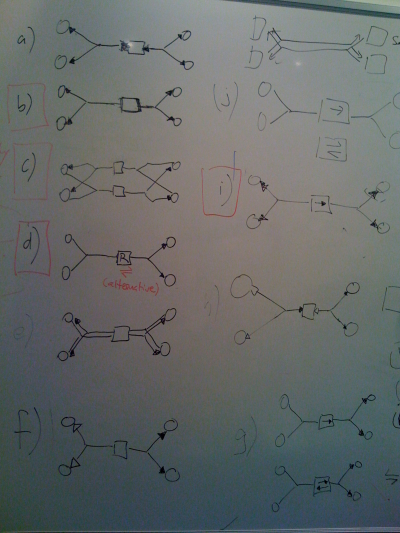 a)
b)
c)
d)
R
⇌
(alternative)
e)
f)
(j)
→
i)
→
h)
g)
→